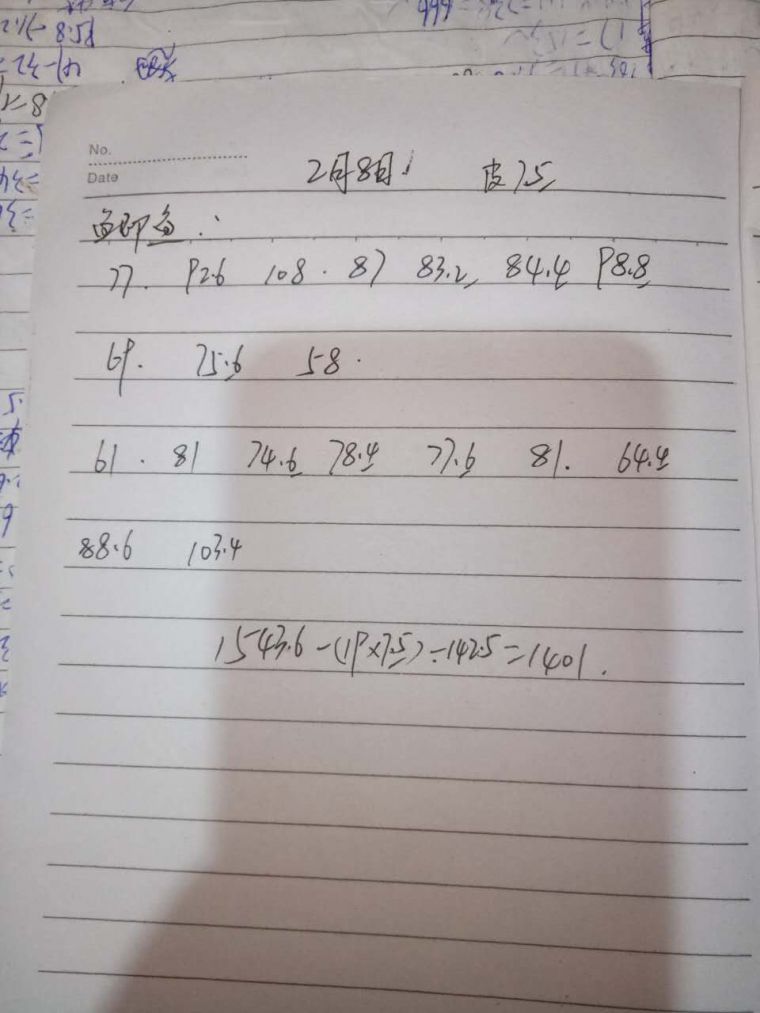 No.
Date 2月8日. 皮7.5
即鱼:
77. 92.6 108. 87 83.2 84.4 98.8
69. 75.6 58.
61. 81 74.6 78.4 77.6 81. 64.4
88.6 103.4
1543.6-(19×7.5)-142.5=1401.